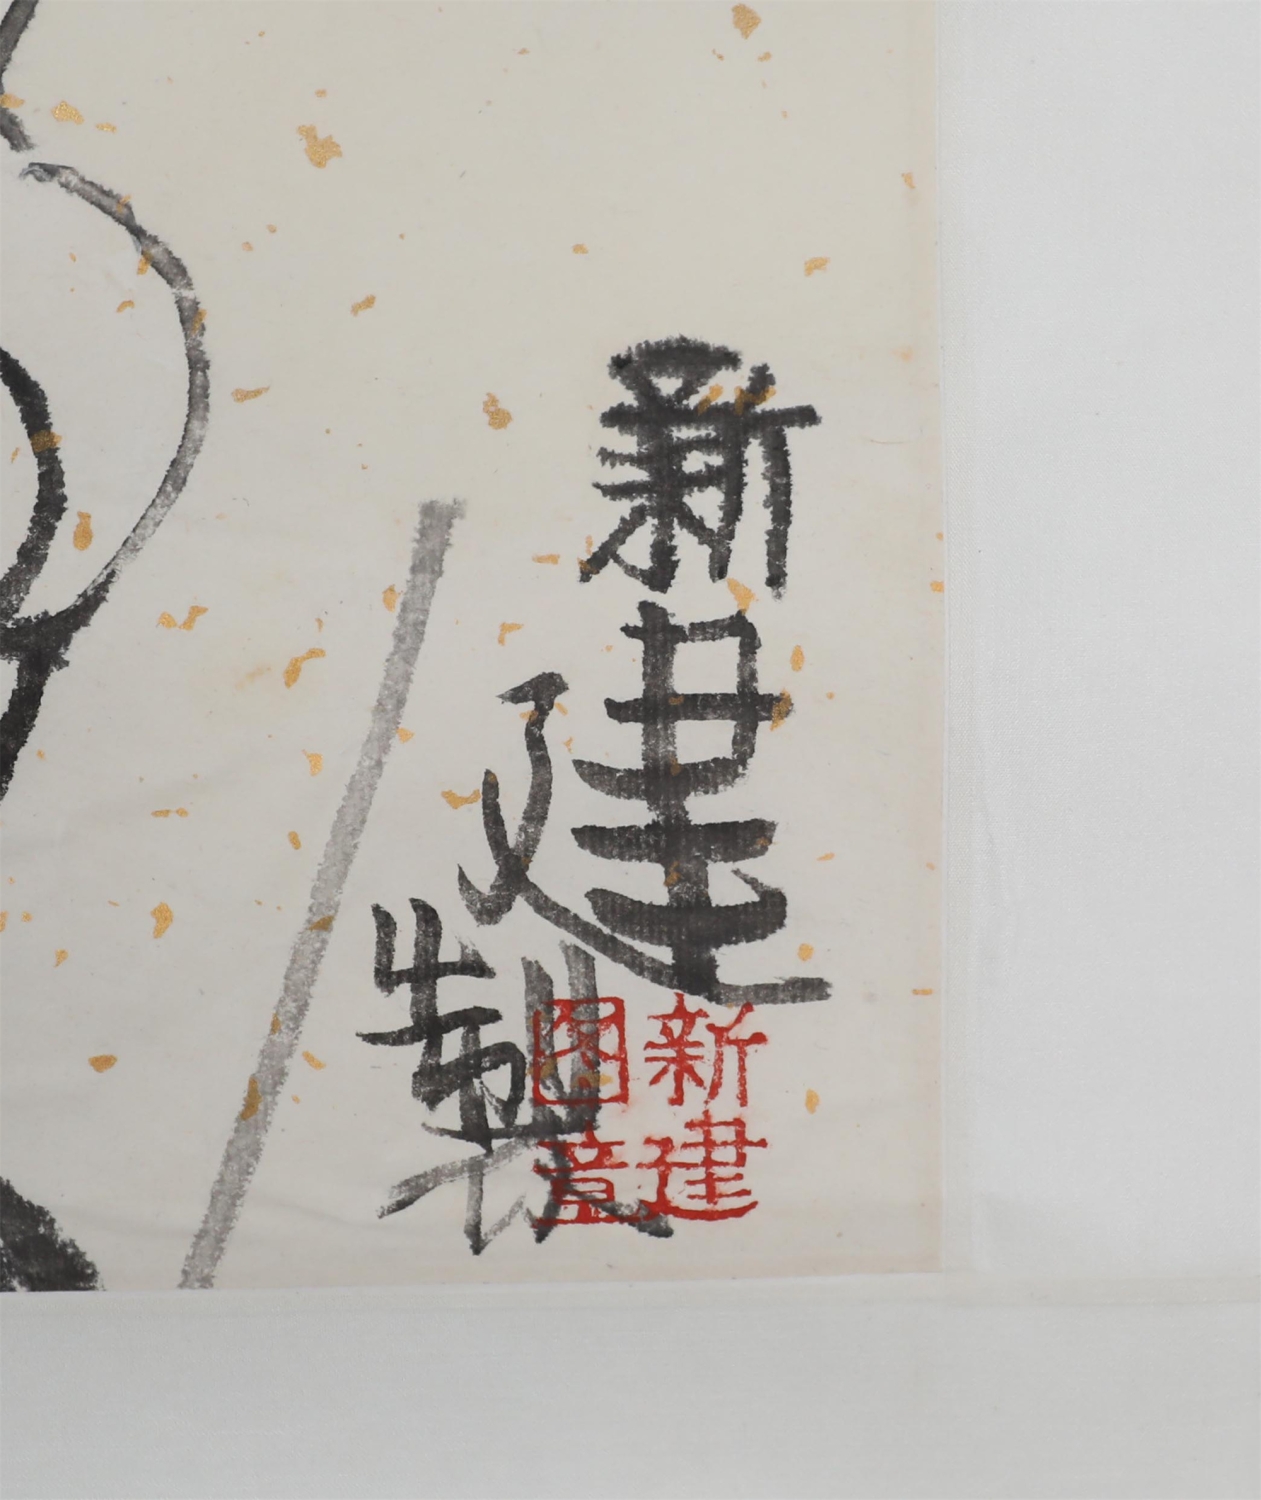 新建製
新建
图章